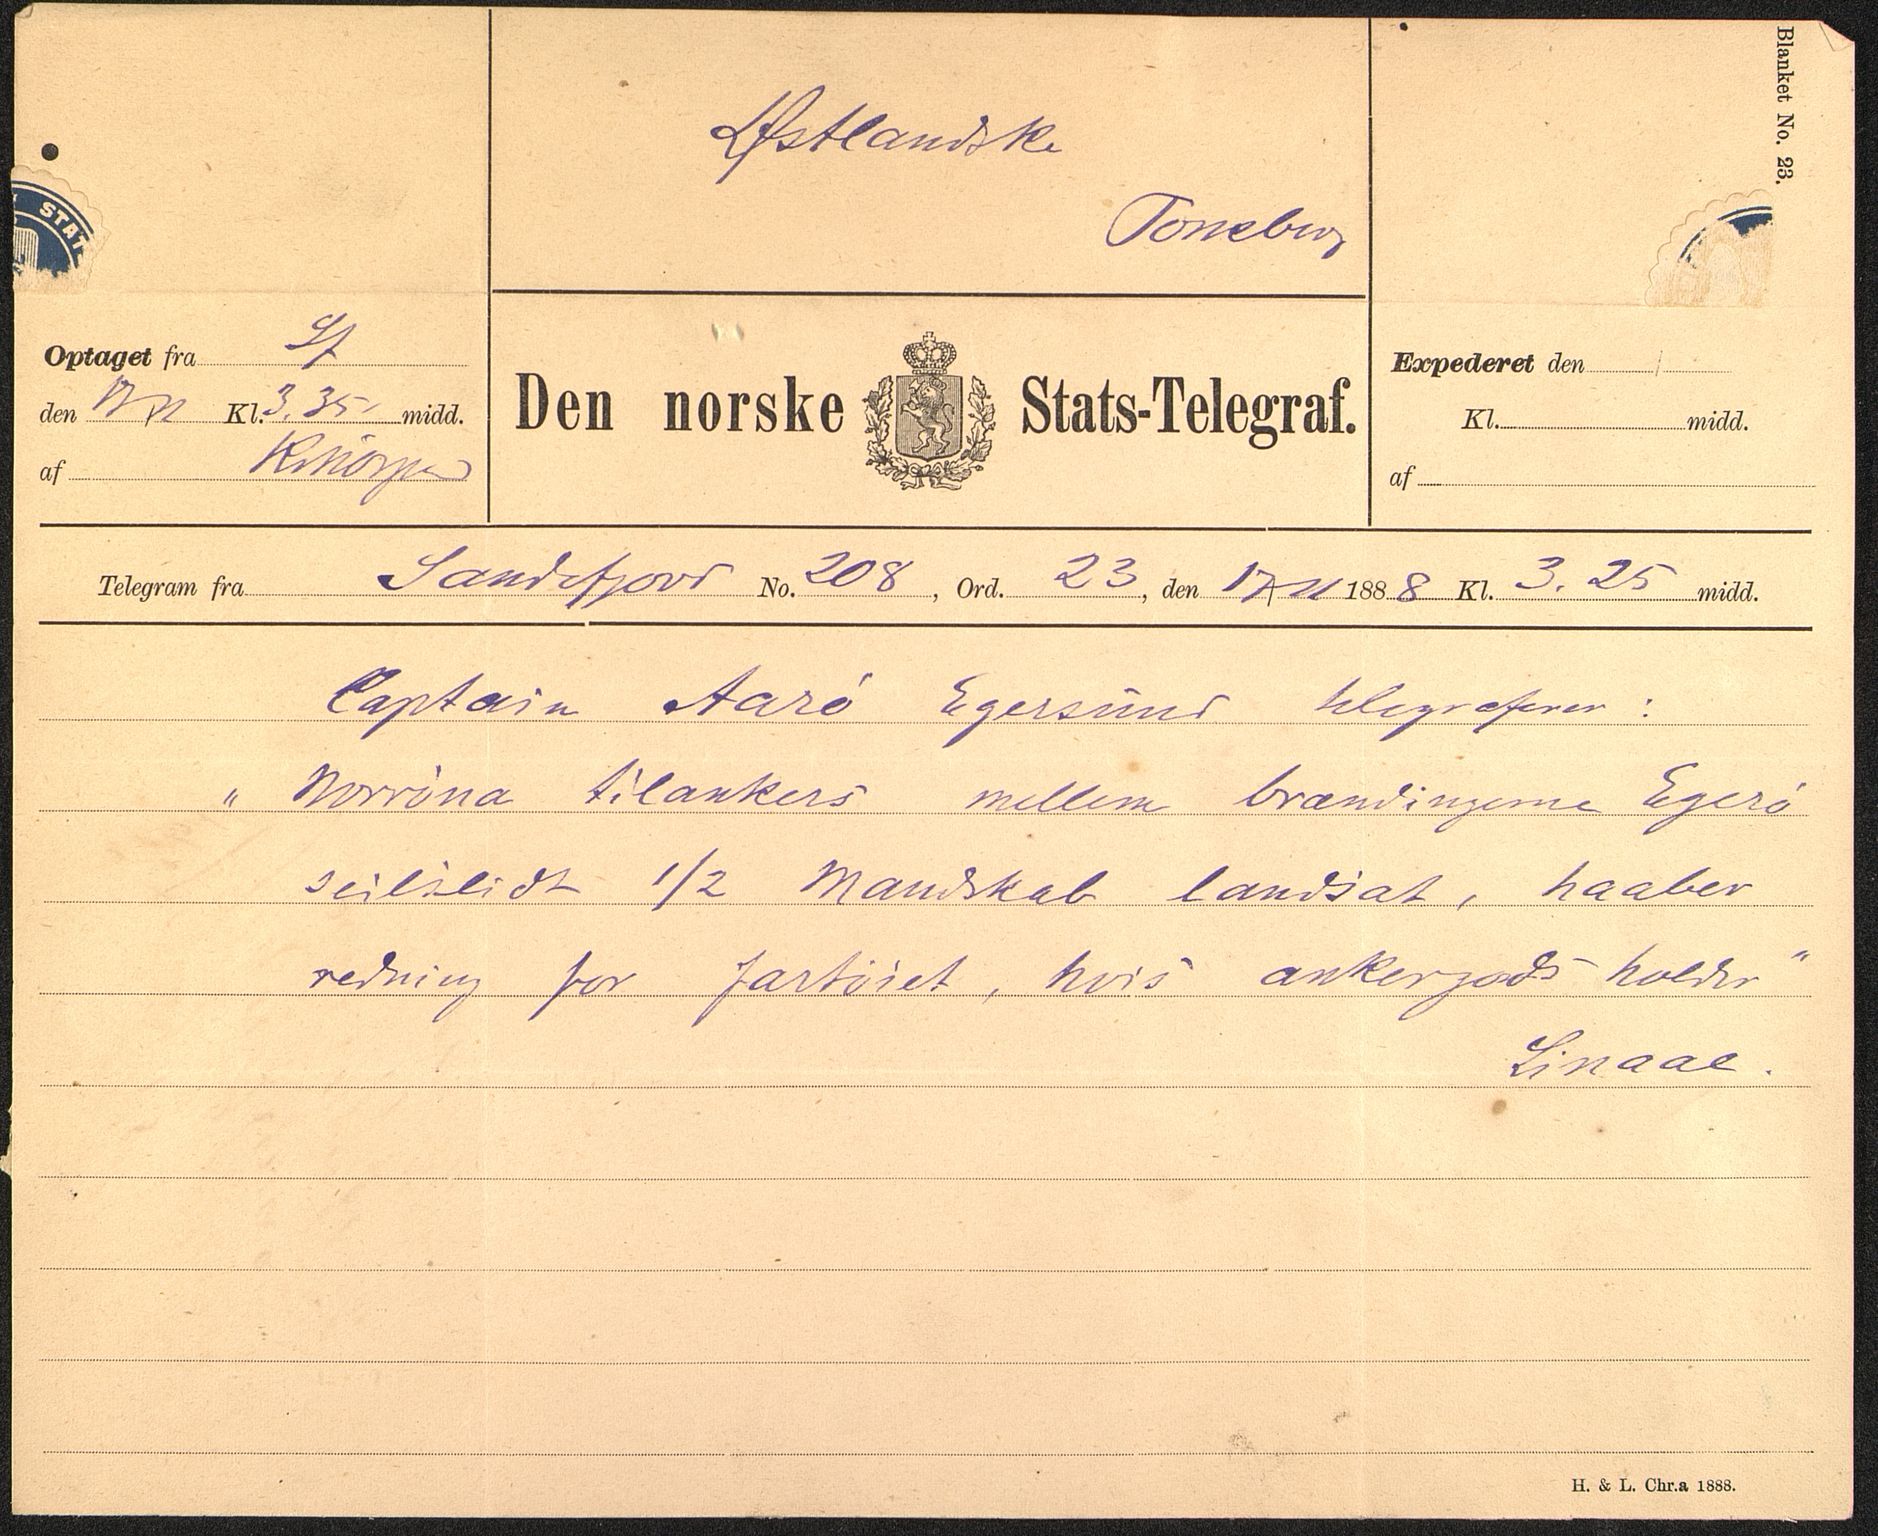 Blanket No. 23.
Østlandske
Tonsberg
STAT
Optaget fra Sf
den 17/11 Kl. 3.35 midd.
af
Den norske Stats-Telegraf.
Expederet den /
Kl. midd.
af
Telegram fra Sandefjord No. 208, Ord. 23, den 17/11 1888 Kl. 3.25 midd.
Captain Aarö Egersund telegraferer:
"Norröna tilankers mellem brændingerne Egerö
seilslidt 1/2 Mandskab landsat, haaber
redning for fartöiet, hvis ankergods holder"
Linaae.
H. & L. Chr.a 1888.